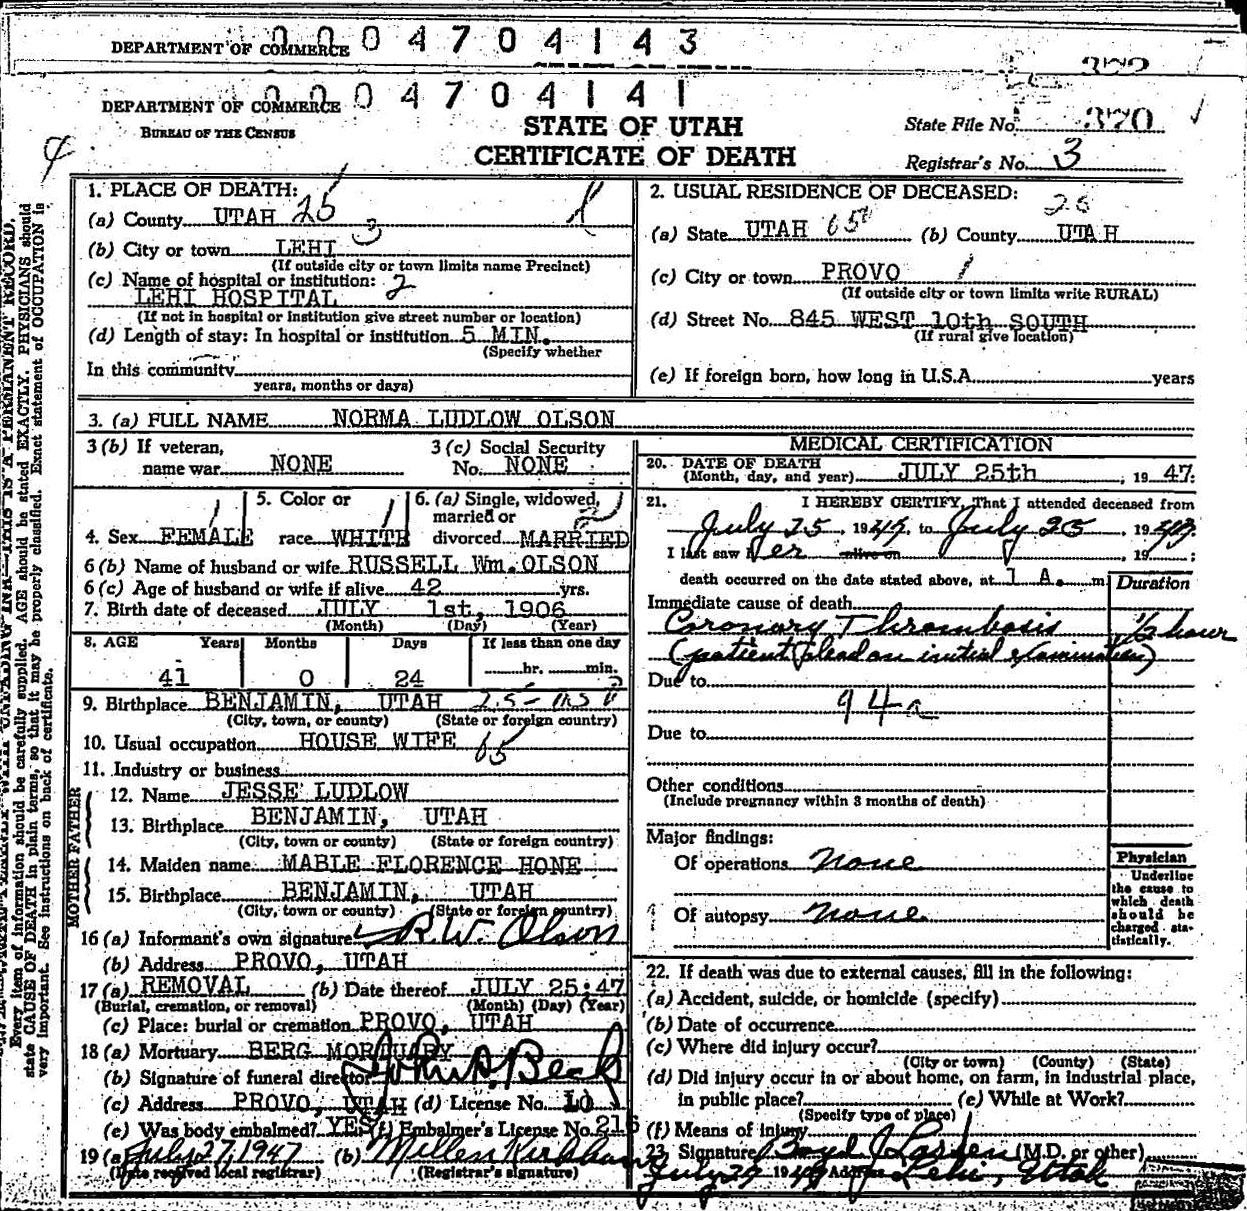 DEPARTMENT OF COMMERCE 0 0 0 4 7 0 4 1 4 3
DEPARTMENT OF COMMERCE 0 0 0 4 7 0 4 1 4 1
BUREAU OF THE CENSUS
STATE OF UTAH
CERTIFICATE OF DEATH
State File No. 370
Registrar's No. 3
1. PLACE OF DEATH:
(a) County UTAH 25
(b) City or town LEHI 3
(If outside city or town limits name Precinct)
(c) Name of hospital or institution: 2
LEHI HOSPITAL
(If not in hospital or institution give street number or location)
(d) Length of stay: In hospital or institution 5 MIN.
(Specify whether
In this community
years, months or days)
2. USUAL RESIDENCE OF DECEASED:
(a) State UTAH (b) County UTAH
(c) City or town PROVO 1
(If outside city or town limits write RURAL)
(d) Street No. 845 WEST 10th SOUTH
(If rural give location)
(e) If foreign born, how long in U.S.A. years
3. (a) FULL NAME NORMA LUDLOW OLSON
3 (b) If veteran, name war NONE
3 (c) Social Security No. NONE
4. Sex FEMALE
5. Color or race WHITE
6. (a) Single, widowed, married or divorced MARRIED
6 (b) Name of husband or wife RUSSELL Wm. OLSON
6 (c) Age of husband or wife if alive 42 yrs.
7. Birth date of deceased JULY 1st, 1906
(Month) (Day) (Year)
8. AGE Years Months Days If less than one day
41 0 24 hr. min.
9. Birthplace BENJAMIN, UTAH
(City, town, or county) (State or foreign country)
10. Usual occupation HOUSE WIFE
11. Industry or business
FATHER
12. Name JESSE LUDLOW
13. Birthplace BENJAMIN, UTAH
(City, town or county) (State or foreign country)
MOTHER
14. Maiden name MABLE FLORENCE HONE
15. Birthplace BENJAMIN, UTAH
(City, town or county) (State or foreign country)
16 (a) Informant's own signature R.W. Olson
(b) Address PROVO, UTAH
17 (a) REMOVAL (b) Date thereof JULY 25:47
(Burial, cremation, or removal) (Month) (Day) (Year)
(c) Place: burial or cremation PROVO, UTAH
18 (a) Mortuary BERG MORTUARY
(b) Signature of funeral director
(c) Address PROVO, UTAH (d) License No. 10
(e) Was body embalmed? YES (f) Embalmer's License No. 216
19 (a) July 27, 1947 (b) Millen Kirkham
(Date received local registrar) (Registrar's signature)
MEDICAL CERTIFICATION
20. DATE OF DEATH
(Month, day, and year) JULY 25th, 19 47.
21. I HEREBY CERTIFY, That I attended deceased from
July 25 1947, to July 25 1947.
I last saw her alive on 19 ;
death occurred on the date stated above, at 1 A. m.
Duration
Immediate cause of death
Coronary Thrombosis 1/2 hour
(patient dead on initial examination)
Due to
94a
Due to
Other conditions
(Include pregnancy within 3 months of death)
Major findings:
Of operations none
Of autopsy none
Physician
Underline the cause to which death should be charged statistically.
22. If death was due to external causes, fill in the following:
(a) Accident, suicide, or homicide (specify)
(b) Date of occurrence
(c) Where did injury occur?
(City or town) (County) (State)
(d) Did injury occur in or about home, on farm, in industrial place,
in public place? (e) While at Work?
(Specify type of place)
(f) Means of injury
23. Signature Boyd J Larsen (M.D. or other)
Address Lehi, Utah
Every item of information should be carefully supplied. AGE should be stated EXACTLY. PHYSICIANS should
state CAUSE OF DEATH in plain terms, so that it may be properly classified. Exact statement of OCCUPATION is
very important. See instructions on back of certificate.